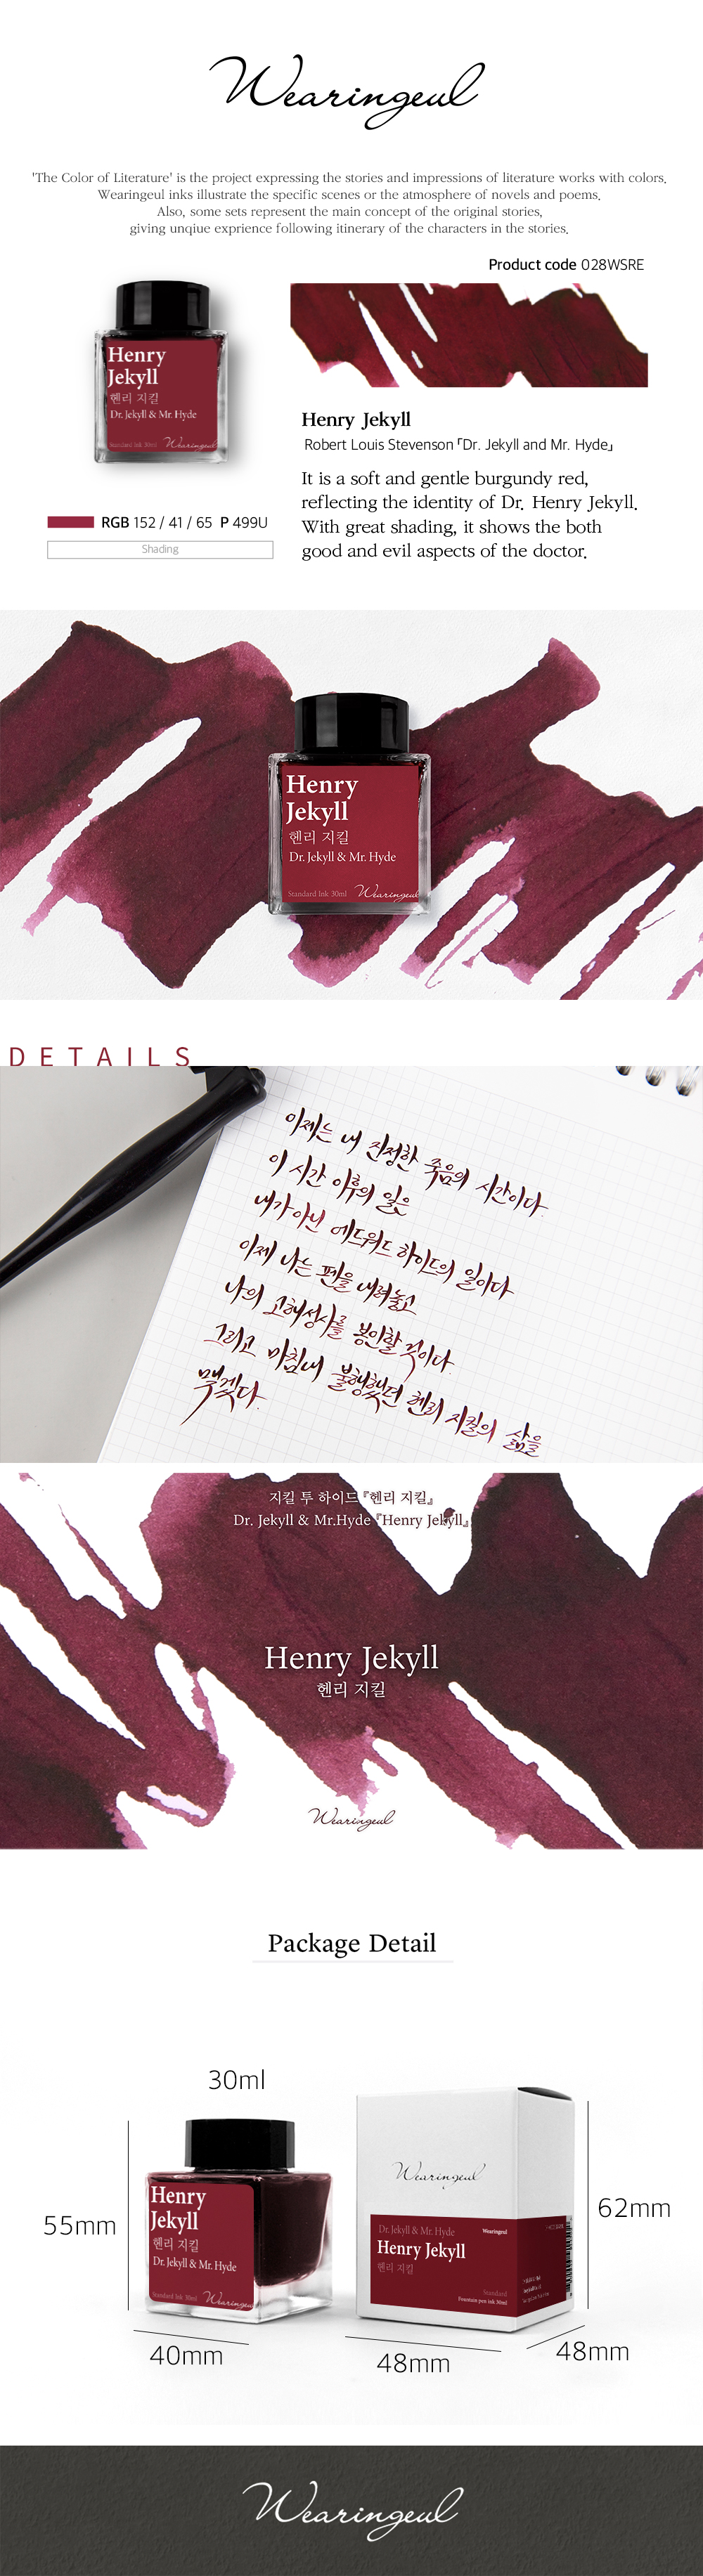 Wearingeul
'The Color of Literature' is the project expressing the stories and impressions of literature works with colors.
Wearingeul inks illustrate the specific scenes or the atmosphere of novels and poems.
Also, some sets represent the main concept of the original stories,
giving unqiue exprience following itinerary of the characters in the stories.
Product code 028WSRE
Henry
Jekyll
헨리 지킬
Dr. Jekyll & Mr. Hyde
Standard Ink 30ml Wearingeul
Henry Jekyll
Robert Louis Stevenson「Dr. Jekyll and Mr. Hyde」
It is a soft and gentle burgundy red,
reflecting the identity of Dr. Henry Jekyll.
With great shading, it shows the both
good and evil aspects of the doctor.
RGB 152 / 41 / 65 P 499U
Shading
Henry
Jekyll
헨리 지킬
Dr. Jekyll & Mr. Hyde
Standard Ink 30ml Wearingeul
DETAILS
이제는 내 진정한 죽음의 시간이다.
이 시간 이후의 일은
내가 아닌 에드워드 하이드의 일이다
이제 나는 펜을 내려놓고
나의 고해성사를 봉인할 것이다.
그리고 마침내 불행했던 헨리 지킬의 삶을
맺겠다.
지킬 투 하이드『헨리 지킬』
Dr. Jekyll & Mr.Hyde『Henry Jekyll』
Henry Jekyll
헨리 지킬
Wearingeul
Package Detail
30ml
55mm
40mm
Henry
Jekyll
헨리 지킬
Dr. Jekyll & Mr. Hyde
Standard Ink 30ml Wearingeul
Wearingeul
Dr. Jekyll & Mr. Hyde Wearingeul
Henry Jekyll
헨리 지킬
Standard
Fountain pen ink 30ml
62mm
48mm
48mm
Wearingeul